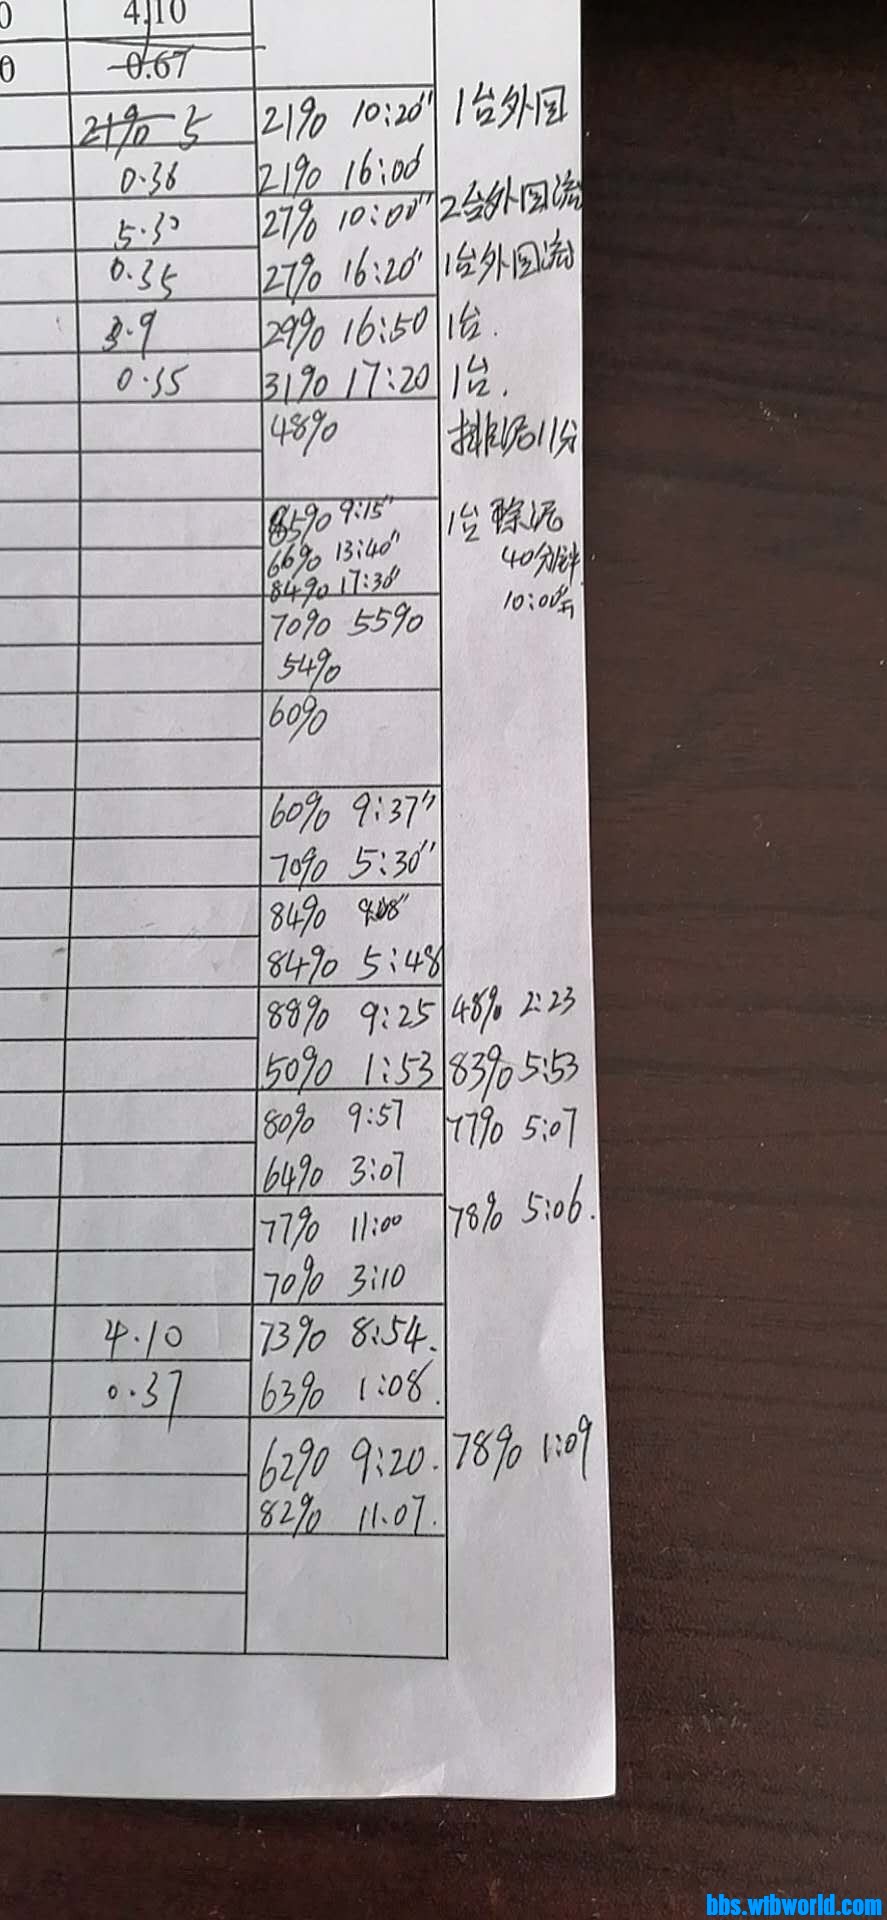 0 4.10
0 0.67
21% 5 21% 10:20" 1台外回
0.36 21% 16:00
5.30 27% 10:00" 2台外回流
0.35 27% 16:20" 1台外回流
3.9 29% 16:50 1台.
0.35 31% 17:20 1台.
48% 排泥11分
85% 9:15" 1台除泥
66% 13:40" 40分钟
84% 17:30" 10:00
70% 55%
54%
60%
60% 9:37"
70% 5:30"
84%
84% 5:48
88% 9:25 48% 2:23
50% 1:53 83% 5:53
80% 9:57 77% 5:07
64% 3:07
77% 11:00 78% 5:06.
70% 3:10
4.10 73% 8:54.
0.37 63% 1:08.
62% 9:20. 78% 1:09
82% 11.07.
bbs.wtbworld.com